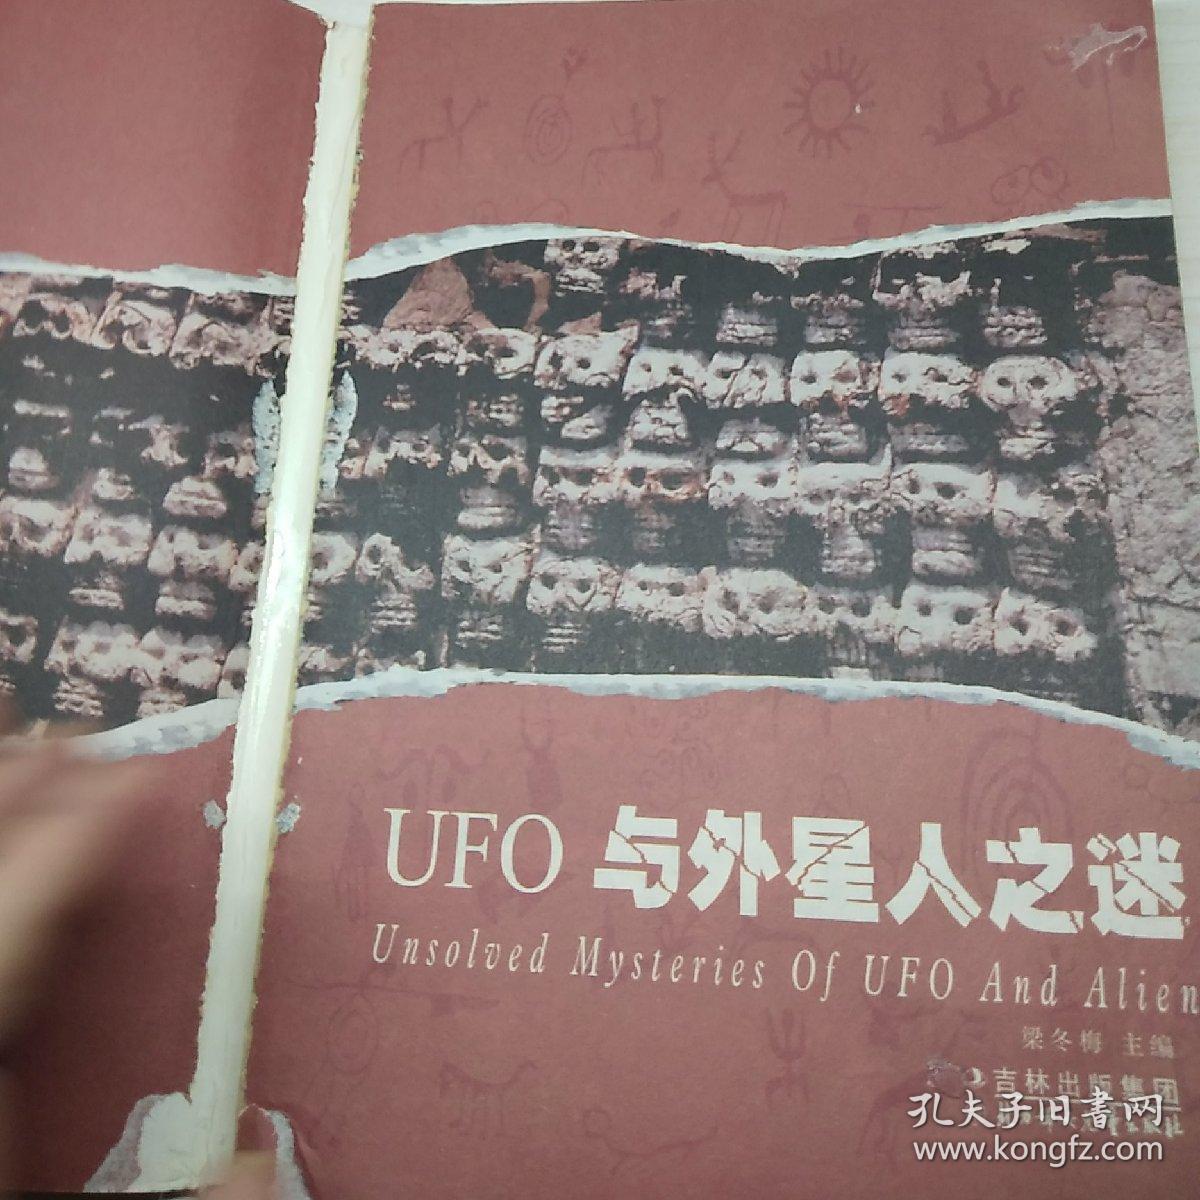 UFO 与外星人之谜
Unsolved Mysteries Of UFO And Alien
梁冬梅 主编
吉林出版集团
孔夫子旧书网
www.kongfz.com